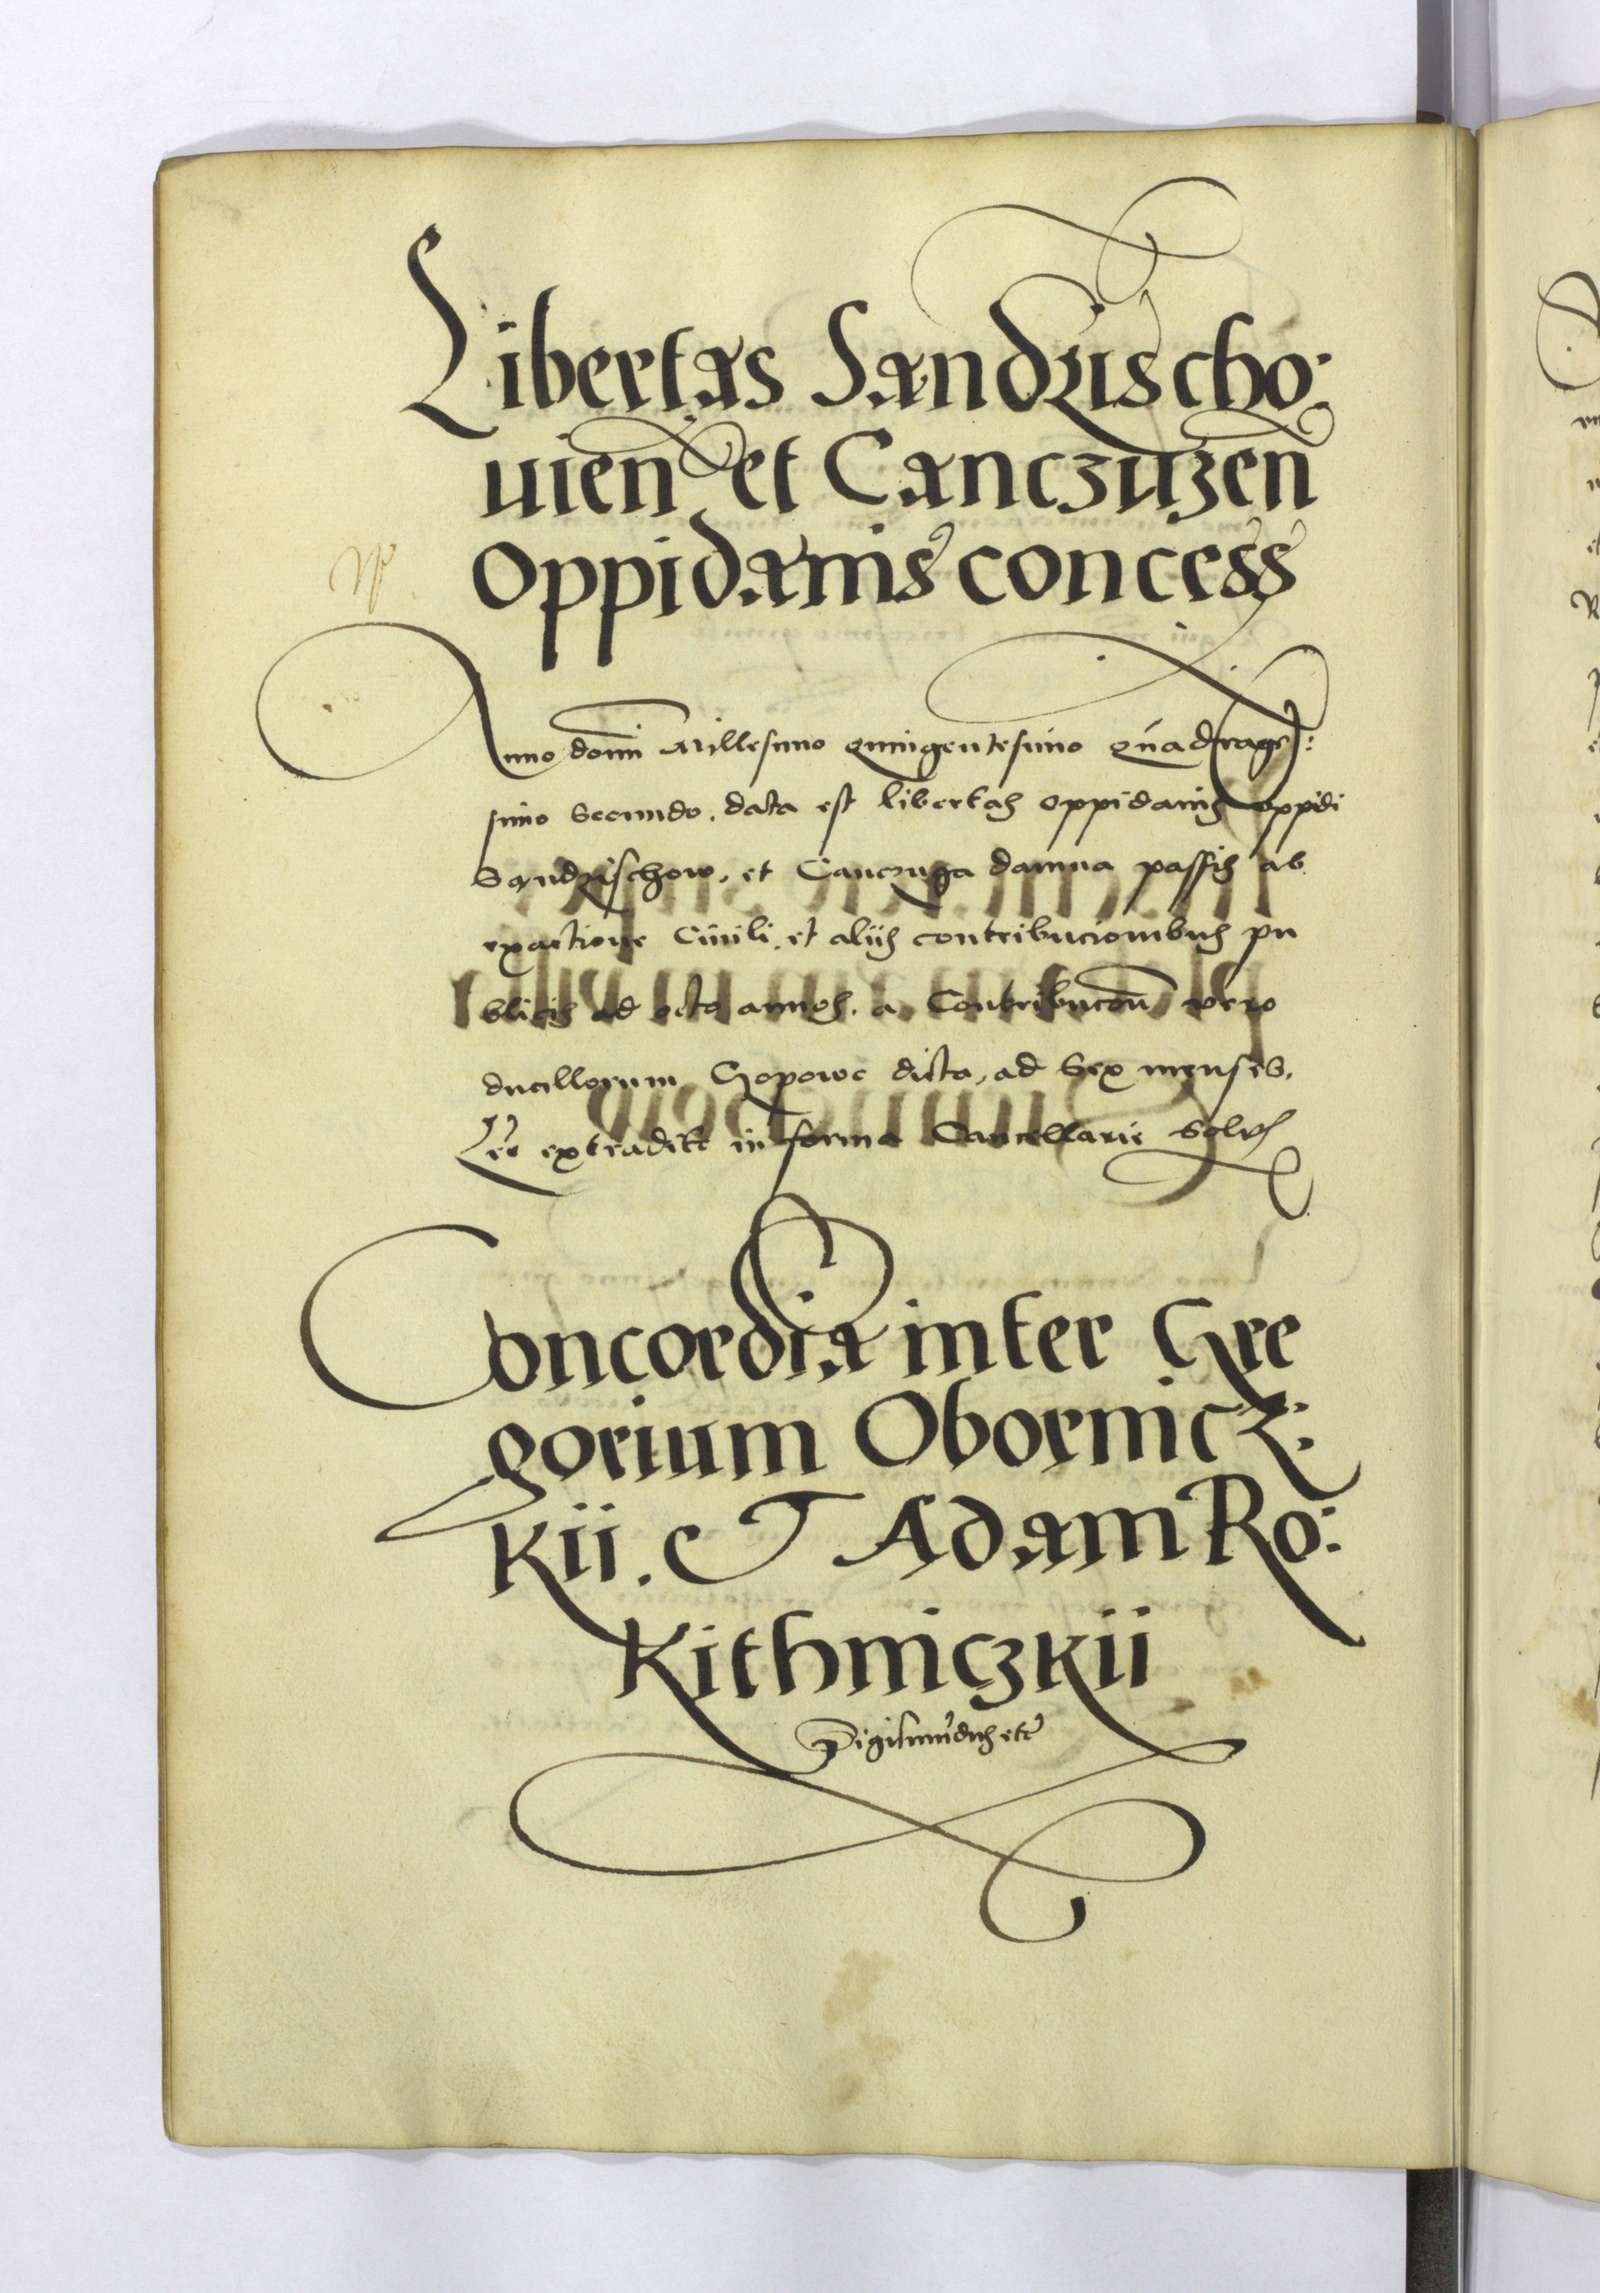 Libertas Sandzischo:
uien et Canczuzen
oppidanis concess
Anno domi Millesimo quingentesimo quadrage:
simo Secundo. data est libertas oppidanis oppidi
Sandzischow. et Canczuga damna passis ab
exactione Ciuili. et aliis contribucionibus pu
blicis ad octo annos. a Contribuconi vero
ducillorum Czopowe dicta, ad Sex menses.
extradite in forma Cancellarie
Concordia inter Gre
gorium Obornicz:
kii. et Adam Ro:
kithniczkii
Sigismundus etc